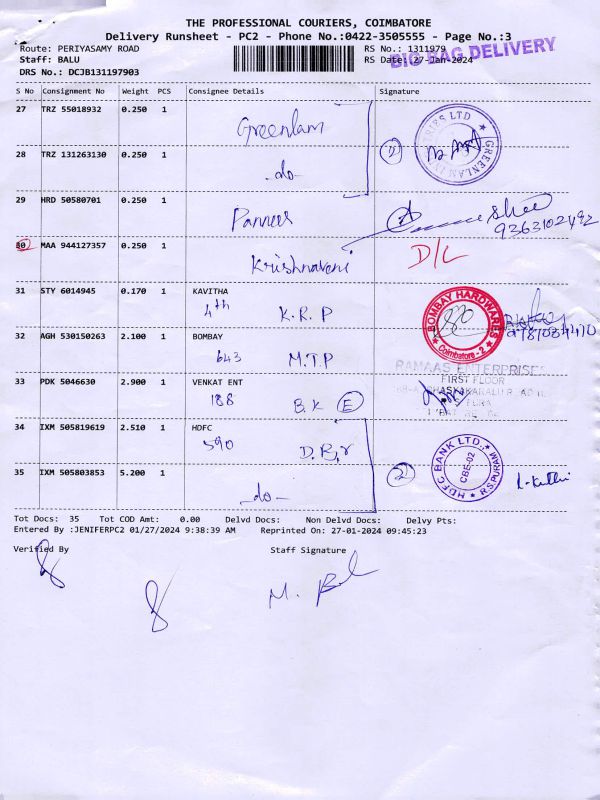 THE PROFESSIONAL COURIERS, COIMBATORE
Delivery Runsheet - PC2 - Phone No.:0422-3505555 - Page No.:3
BIG BAG DELIVERY
Route: PERIYASAMY ROAD RS No.: 1311979
Staff: BALU RS Date: 27-Jan-2024
DRS No.: DCJB131197903
S No Consignment No Weight PCS Consignee Details Signature
27 TRZ 55018932 0.250 1 Greenlam
28 TRZ 131263130 0.250 1 -do- 2
GREENLAM
29 HRD 50580701 0.250 1 Pannees
9363102492
30 MAA 944127357 0.250 1 Krishnaveni D/L
31 STY 6014945 0.170 1 KAVITHA
4th K.R.P
32 AGH 530150263 2.100 1 BOMBAY
643 M.T.P
BOMBAY HARDWARES
Coimbatore - 2
33 PDK 5046630 2.900 1 VENKAT ENT
188 B.K E
RAMAAS ENTERPRISES
FIRST FLOOR
34 IXM 505819619 2.510 1 HDFC
590 D.B.r
35 IXM 505803853 5.200 1 -do- 2
HDFC BANK LTD.
CBE-02
R.S.PURAM
Tot Docs: 35 Tot COD Amt: 0.00 Delvd Docs: Non Delvd Docs: Delvy Pts:
Entered By :JENIFERPC2 01/27/2024 9:38:39 AM Reprinted On: 27-01-2024 09:45:23
Verified By Staff Signature